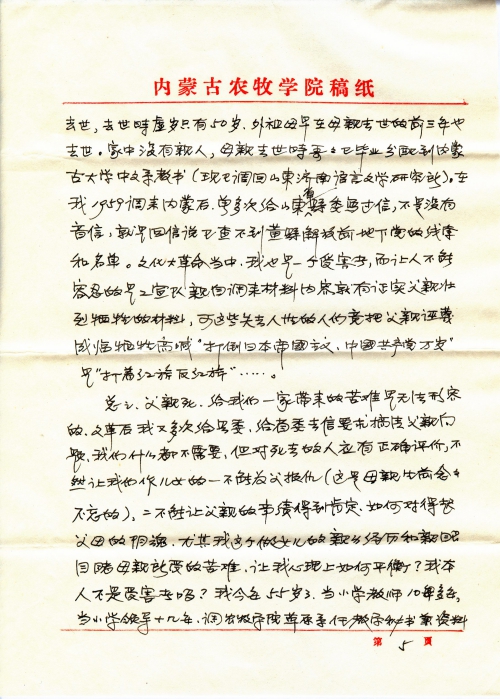 内蒙古农牧学院稿纸
去世，去世时虚岁只有50岁。外祖母早在母亲去世的前三年也
去世。家中没有亲人，母亲去世时哥々已毕业分配到内蒙
古大学中文系教书（现已调回山东济南语言文学研究所）。在
我1959调来内蒙后，曾多次给山东黄县县委写过信，不是没有
音信，就是回信说已查不到黄县解放前地下党的线索
和名单。文化大革命当中，我也是一个受害者，而让人不能
容忍的是工宣队亲自调来材料内容就有证实父亲壮
烈牺牲的材料，可这些失去人性的人们竟把父亲诬蔑
成临牺牲高喊“打倒日本帝國主义、中國共产党万岁”
是“打着红旗反红旗”……。
总之，父亲死，给我们一家带来的苦难是无法形容
的，文革后我又多次给县委、给省委去信要求搞清父亲问
题，我们什么都不需要，但对死去的人应有正确评价，不
然让我们作儿女的一不能为父报仇（这是母亲生前念々
不忘的），二不能让父亲的事绩得到肯定，如何对得起
父母的阴魂，尤其我这个做女儿的亲身经历和亲眼
目睹母亲所受的苦难，让我心理上如何平衡？我本
人不是受害者吗？我今年55岁了，当小学教师10年多，
当小学领导十九年，调农牧学院草原系任教学秘书兼资料
第 5 頁